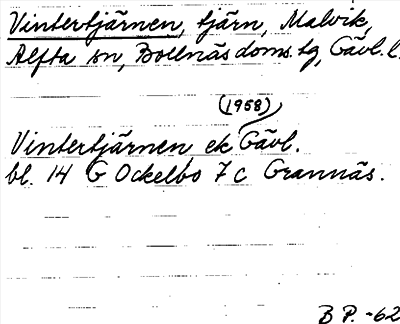 Vintertjärnen, tjärn, Malvik,
Alfta sn, Bollnäs doms.tg, Gävl.l.
(1958)
Vintertjärnen ek Gävl.
bl. 14 G Ockelbo 7 c Grannäs.
B P. -62